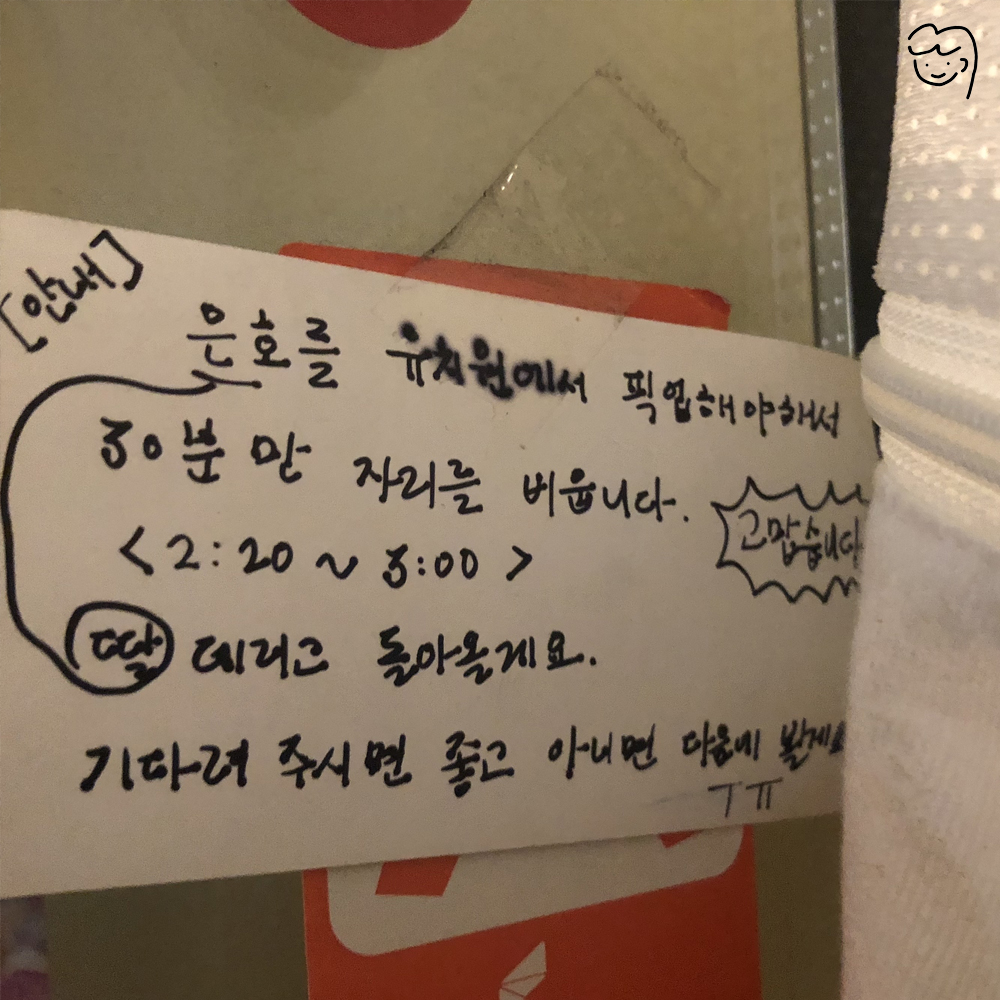 [안내]
은호를 유치원에서 픽업해야해서
30분만 자리를 비웁니다.
<2:20~3:00>
고맙습니다
딸 데리고 돌아올게요.
기다려 주시면 좋고 아니면 다음에 봘게요
ㅜㅠ